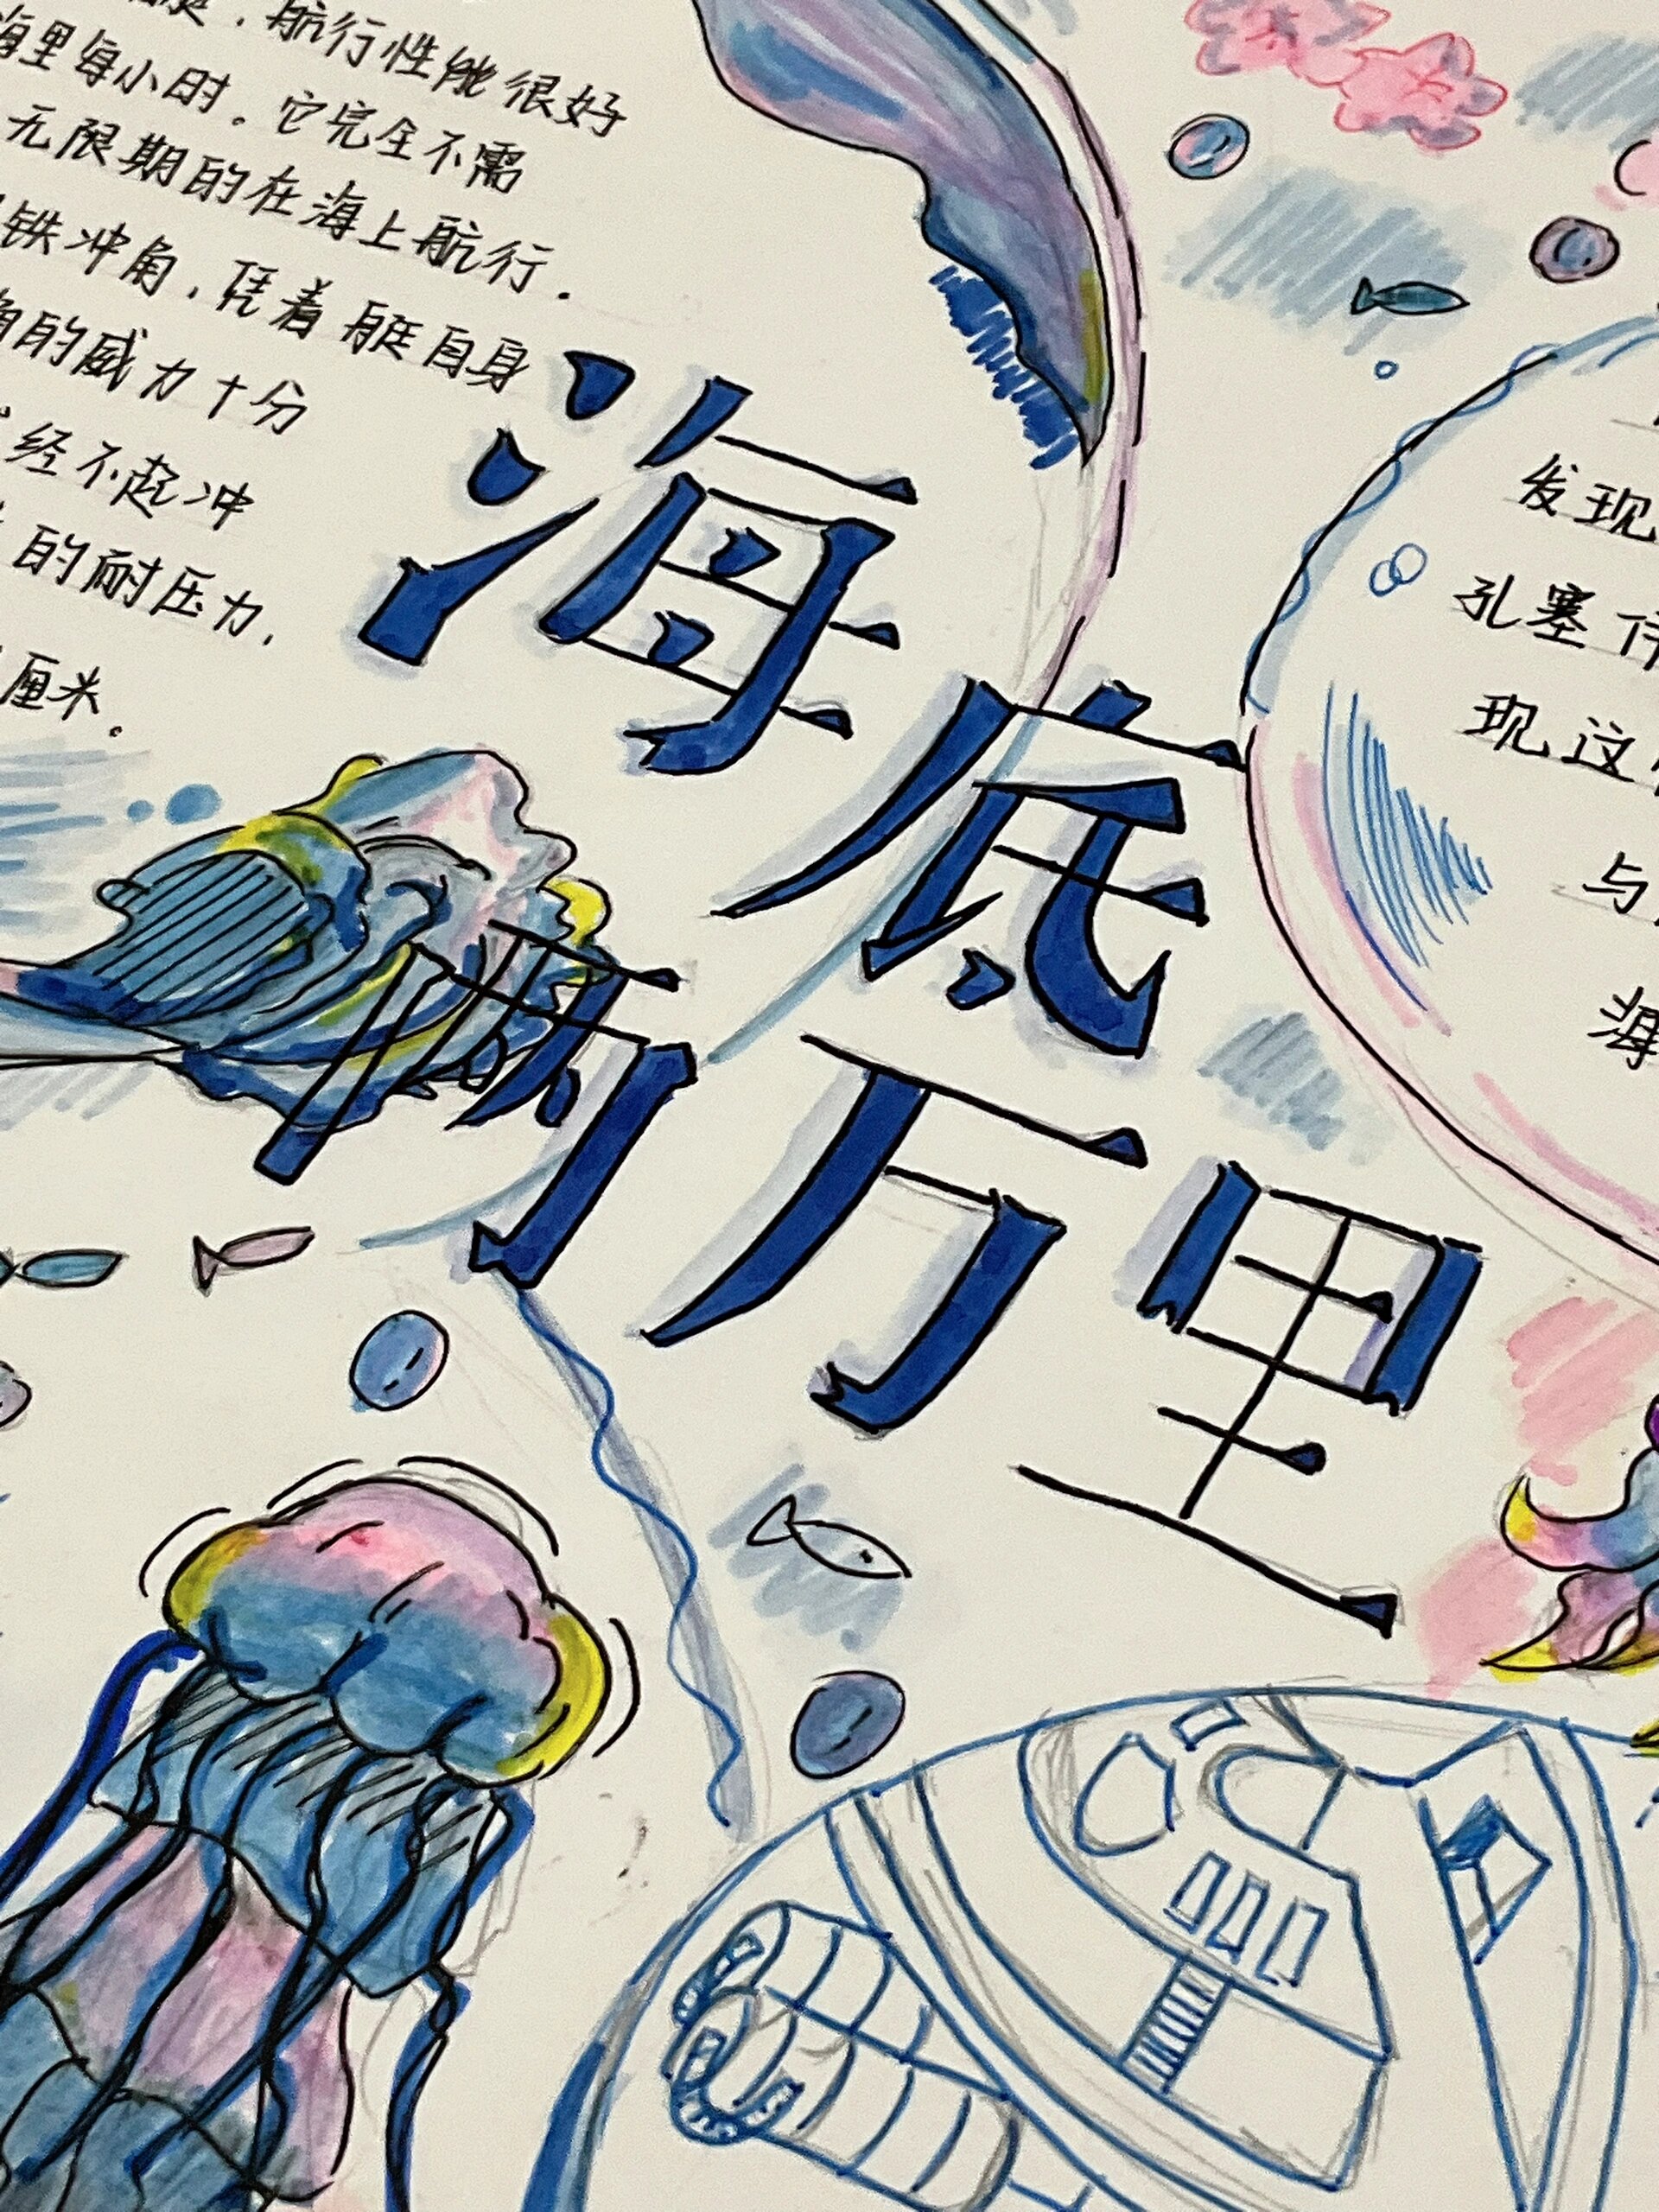 航行性能很好
海里每小时。它完全不需
无限期的在海上航行.
铁冲角.凭着艇自身
的威力十分
经不起冲
的耐压力,
厘米。
海底
两万里
发现
孔塞
现这
与
海